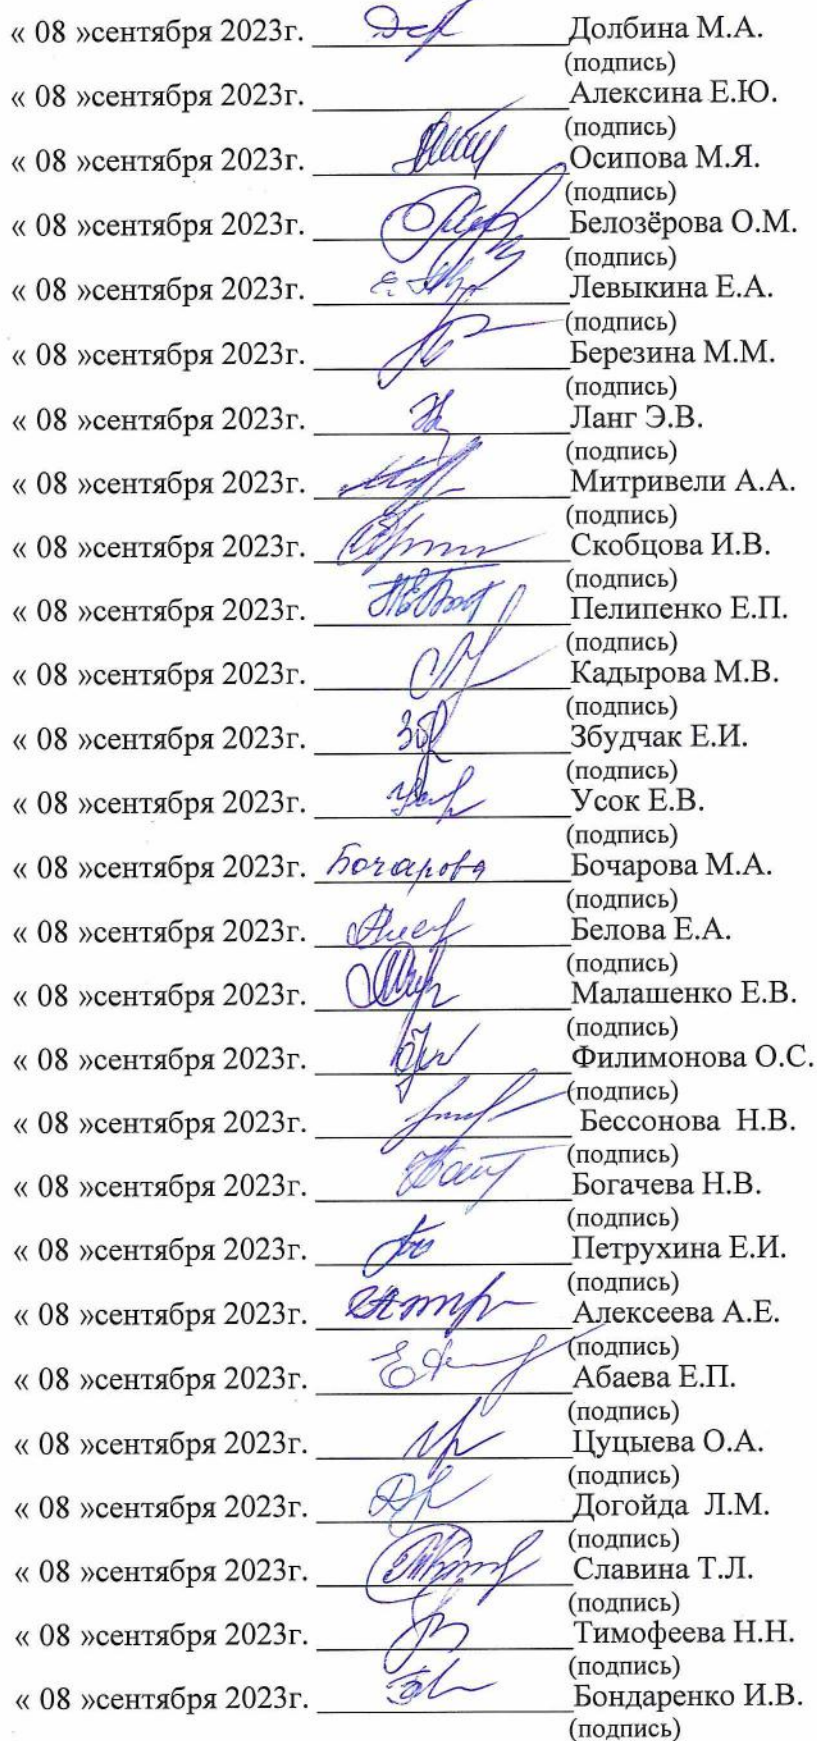 « 08 »сентября 2023г. Долбина М.А.
(подпись)
« 08 »сентября 2023г. Алексина Е.Ю.
(подпись)
« 08 »сентября 2023г. Осипова М.Я.
(подпись)
« 08 »сентября 2023г. Белозёрова О.М.
(подпись)
« 08 »сентября 2023г. Левыкина Е.А.
(подпись)
« 08 »сентября 2023г. Березина М.М.
(подпись)
« 08 »сентября 2023г. Ланг Э.В.
(подпись)
« 08 »сентября 2023г. Митривели А.А.
(подпись)
« 08 »сентября 2023г. Скобцова И.В.
(подпись)
« 08 »сентября 2023г. Пелипенко Е.П.
(подпись)
« 08 »сентября 2023г. Кадырова М.В.
(подпись)
« 08 »сентября 2023г. Збудчак Е.И.
(подпись)
« 08 »сентября 2023г. Усок Е.В.
(подпись)
« 08 »сентября 2023г. Бочарова Бочарова М.А.
(подпись)
« 08 »сентября 2023г. Белова Е.А.
(подпись)
« 08 »сентября 2023г. Малашенко Е.В.
(подпись)
« 08 »сентября 2023г. Филимонова О.С.
(подпись)
« 08 »сентября 2023г. Бессонова Н.В.
(подпись)
« 08 »сентября 2023г. Богачева Н.В.
(подпись)
« 08 »сентября 2023г. Петрухина Е.И.
(подпись)
« 08 »сентября 2023г. Алексеева А.Е.
(подпись)
« 08 »сентября 2023г. Абаева Е.П.
(подпись)
« 08 »сентября 2023г. Цуцыева О.А.
(подпись)
« 08 »сентября 2023г. Догойда Л.М.
(подпись)
« 08 »сентября 2023г. Славина Т.Л.
(подпись)
« 08 »сентября 2023г. Тимофеева Н.Н.
(подпись)
« 08 »сентября 2023г. Бондаренко И.В.
(подпись)